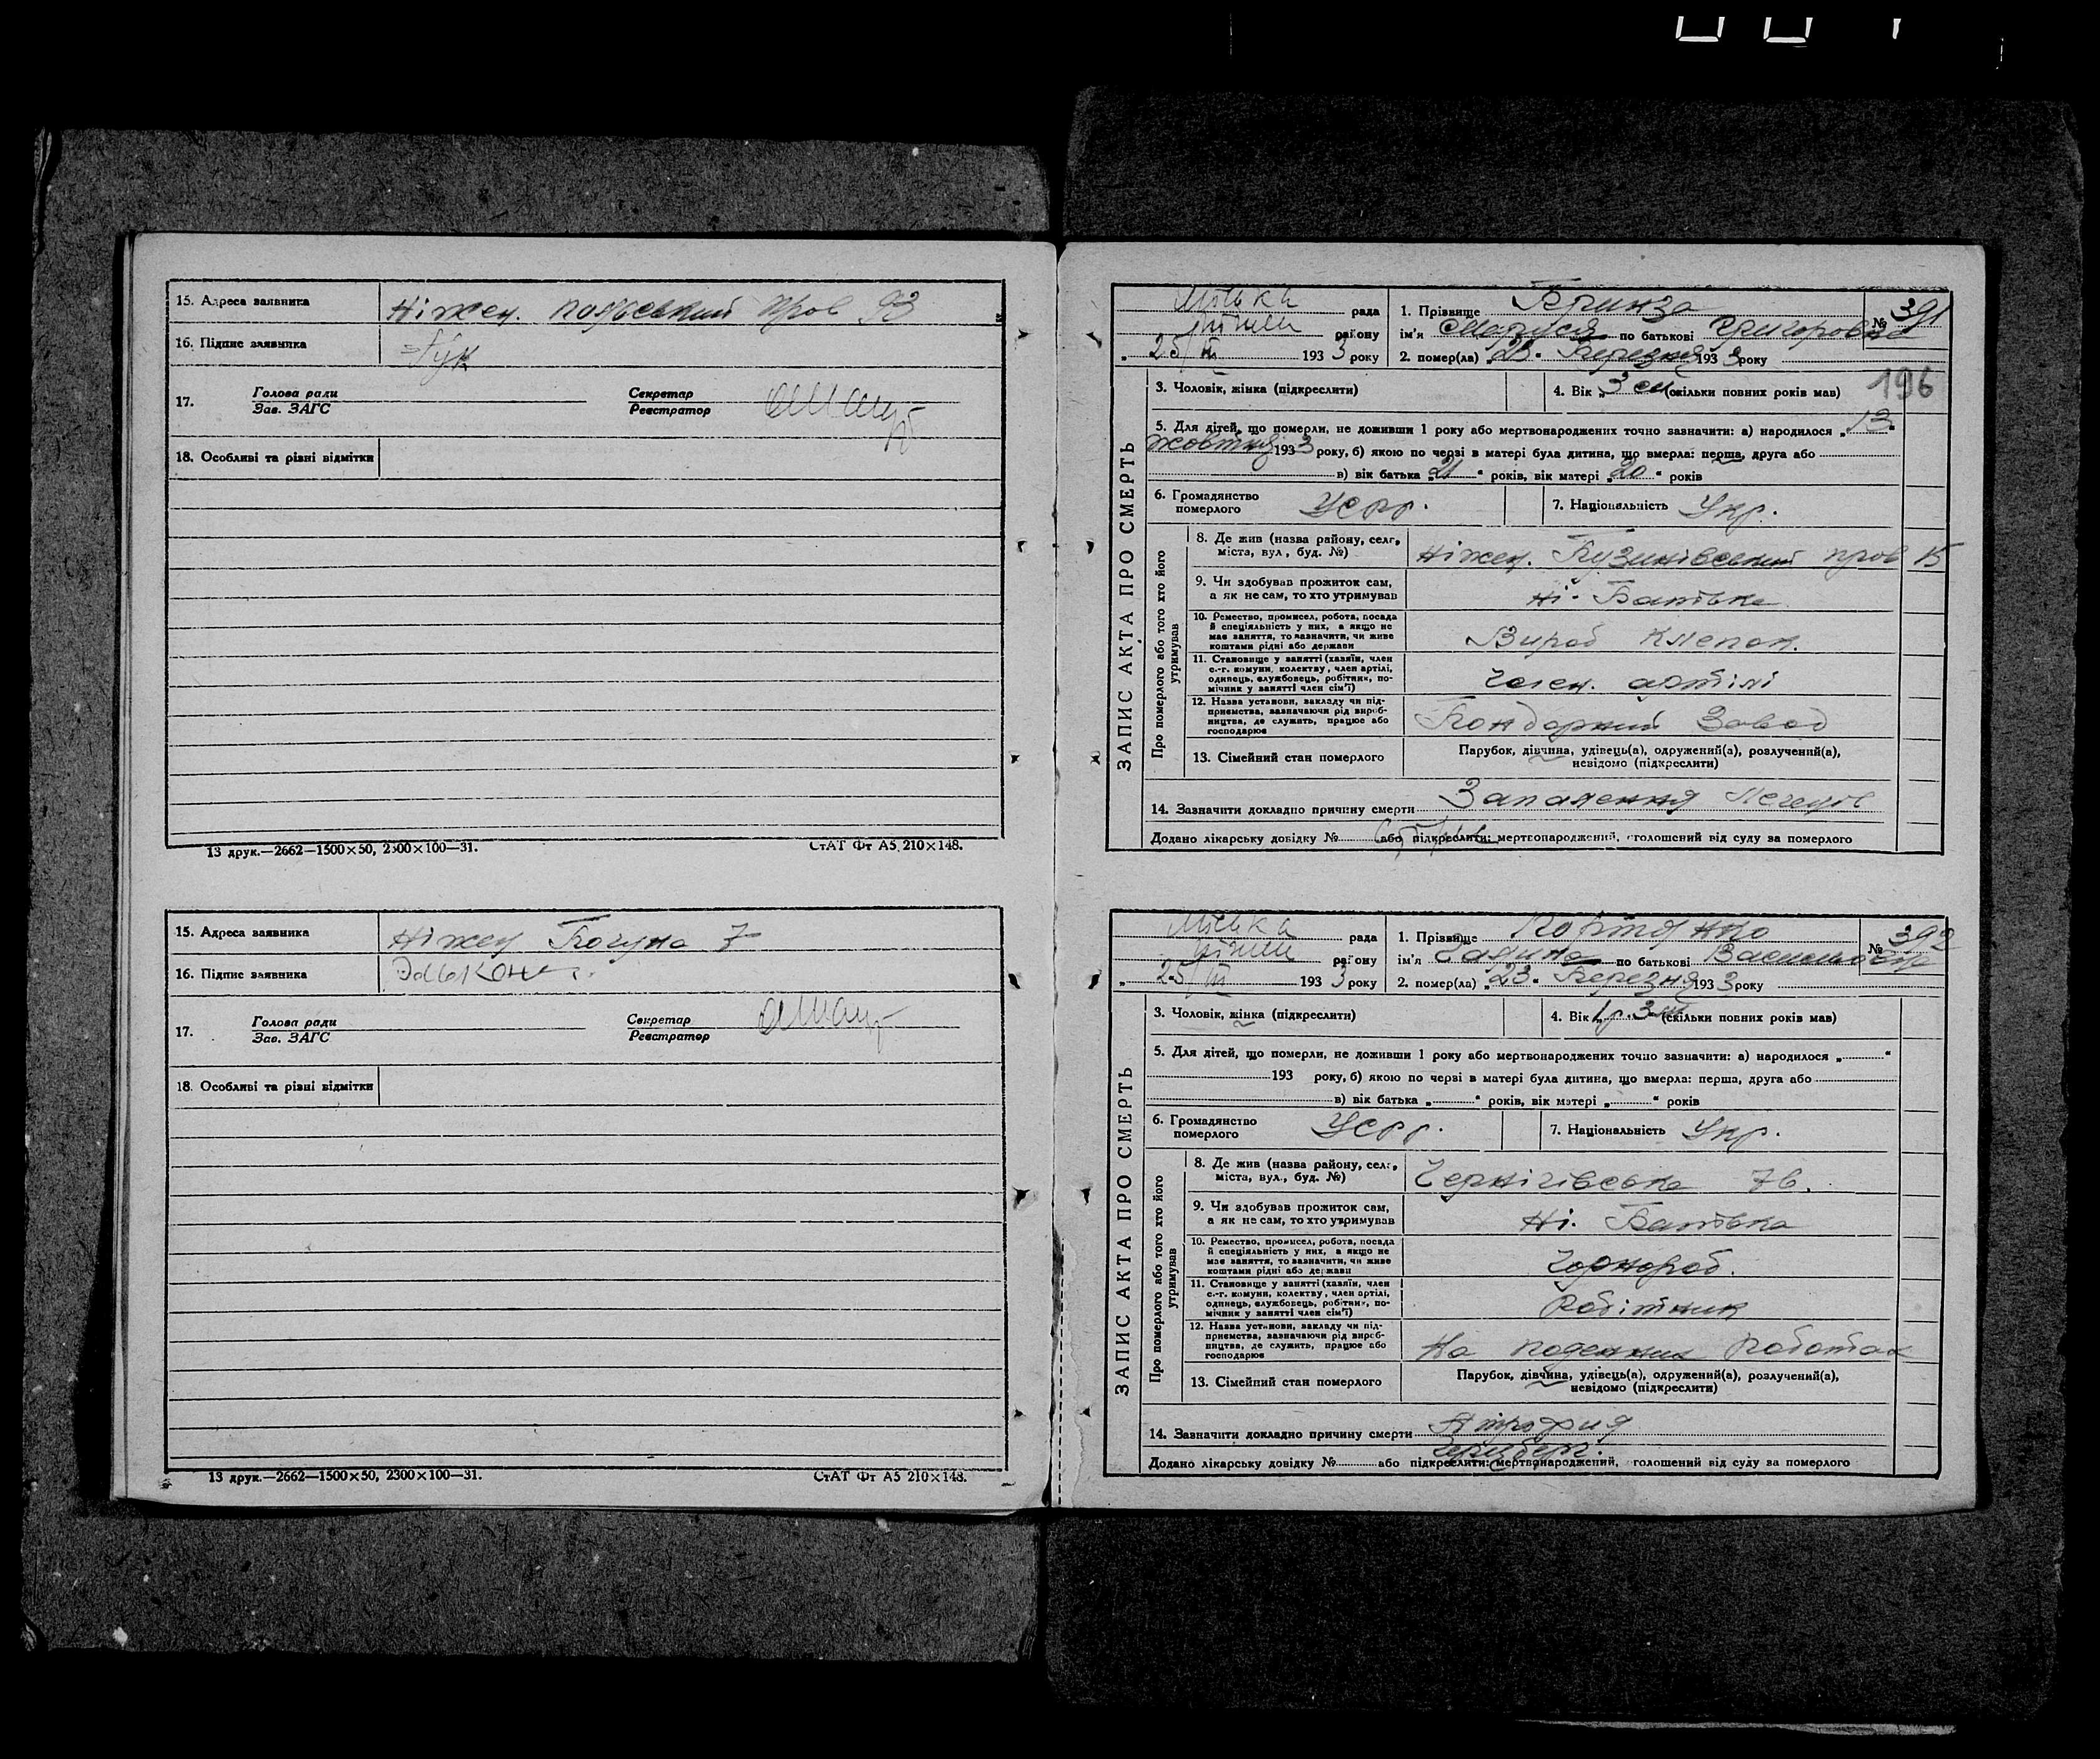 15. Адреса заявника Ніжен. пров 93
16. Підпис заявника
17. Голова ради Секретар
Зав. ЗАГС Реєстратор
18. Особливі та різні відмітки
13 друк.—2662—1500×50, 2300×100—31. СтАТ Фт А5 210×148.
15. Адреса заявника Ніжен Богуна 7
16. Підпис заявника
17. Голова ради Секретар
Зав. ЗАГС Реєстратор
18. Особливі та різні відмітки
13 друк.—2662—1500×50, 2300×100—31. СтАТ Фт А5 210×148.
ЗАПИС АКТА ПРО СМЕРТЬ
Міська рада
Ніжен району
„ 25/III 1933 року
1. Прізвище Бринза № 391
ім'я Маруся по батькові Григоровна
2. помер(ла) „23" Березня 1933 року
196
3. Чоловік, жінка (підкреслити) 4. Вік „3 м (скільки повних років мав)
5. Для дітей, що померли, не доживши 1 року або мертвонароджених точно зазначити: а) народилося „13"
жовтня 1933 року, б) якою по черзі в матері була дитина, що вмерла: перша, друга або
в) вік батька „21" років, вік матері „20" років
6. Громадянство померлого УСРР. 7. Національність Укр.
Про померлого або того хто його утримував
8. Де жив (назва району, села, міста, вул., буд. №) Ніжен. пров 15
9. Чи здобував прожиток сам, а як не сам, то хто утримував ні. Батько
10. Ремество, промисел, робота, посада й спеціяльність у них, а якщо не має заняття, то зазначити, чи живе коштами рідні або держави Вироб Клепок.
11. Становище у занятті (хазяїн, член с.-г. комуни, колективу, член артілі, одинець, службовець, робітник, помічник у занятті член сім'ї) Член. артілі
12. Назва установи, закладу чи підприємства, зазначаючи рід виробництва, де служить, працює або господарює Бондарний Завод
13. Сімейний стан померлого Парубок, дівчина, удівець(а), одружений(а), розлучений(а),
невідомо (підкреслити)
14. Зазначити докладно причину смерти Запалення Легенів
Додано лікарську довідку № або підкреслити: мертвонароджений, оголошений від суду за померлого
ЗАПИС АКТА ПРО СМЕРТЬ
Міська рада
Ніжен району
„ 25/III 1933 року
1. Прізвище № 392
ім'я Галина по батькові
2. помер(ла) „23" Березня 1933 року
3. Чоловік, жінка (підкреслити) 4. Вік „1 р. 3 м (скільки повних років мав)
5. Для дітей, що померли, не доживши 1 року або мертвонароджених точно зазначити: а) народилося „ "
193 року, б) якою по черзі в матері була дитина, що вмерла: перша, друга або
в) вік батька „ " років, вік матері „ " років
6. Громадянство померлого УСРР. 7. Національність Укр.
Про померлого або того хто його утримував
8. Де жив (назва району, села, міста, вул., буд. №) Чернігівська 76.
9. Чи здобував прожиток сам, а як не сам, то хто утримував Ні. Батько
10. Ремество, промисел, робота, посада й спеціяльність у них, а якщо не має заняття, то зазначити, чи живе коштами рідні або держави Чорнороб.
11. Становище у занятті (хазяїн, член с.-г. комуни, колективу, член артілі, одинець, службовець, робітник, помічник у занятті член сім'ї) Робітник
12. Назва установи, закладу чи підприємства, зазначаючи рід виробництва, де служить, працює або господарює На поденних роботах
13. Сімейний стан померлого Парубок, дівчина, удівець(а), одружений(а), розлучений(а),
невідомо (підкреслити)
14. Зазначити докладно причину смерти Атрофия
Додано лікарську довідку № або підкреслити: мертвонароджений, оголошений від суду за померлого